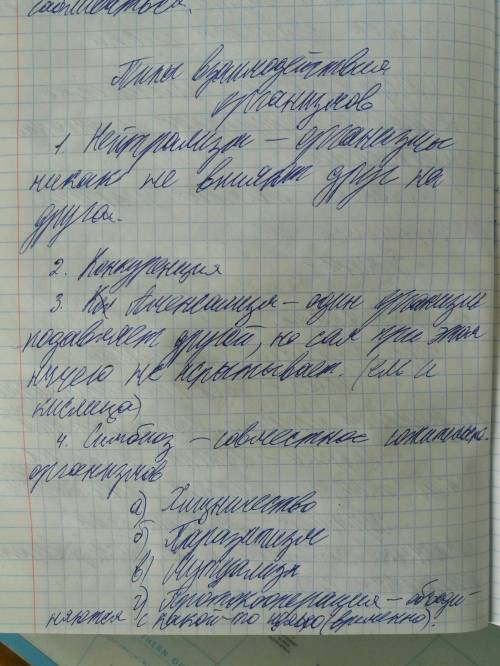 Типы взаимодействия
организмов
1. Нейтрализм – организмы
никак не влияют друг на
друга.
2. Конкуренция
3. Аменсализм – один организм
подавляет другой, но сам при этом
ничего не испытывает. (ель и
кислица)
4. Симбиоз – совместное
организмов
а) Хищничество
б) Паразитизм
в) Мутуализм
г) Протокооперация – объеди-
няются с какой-то (временно).